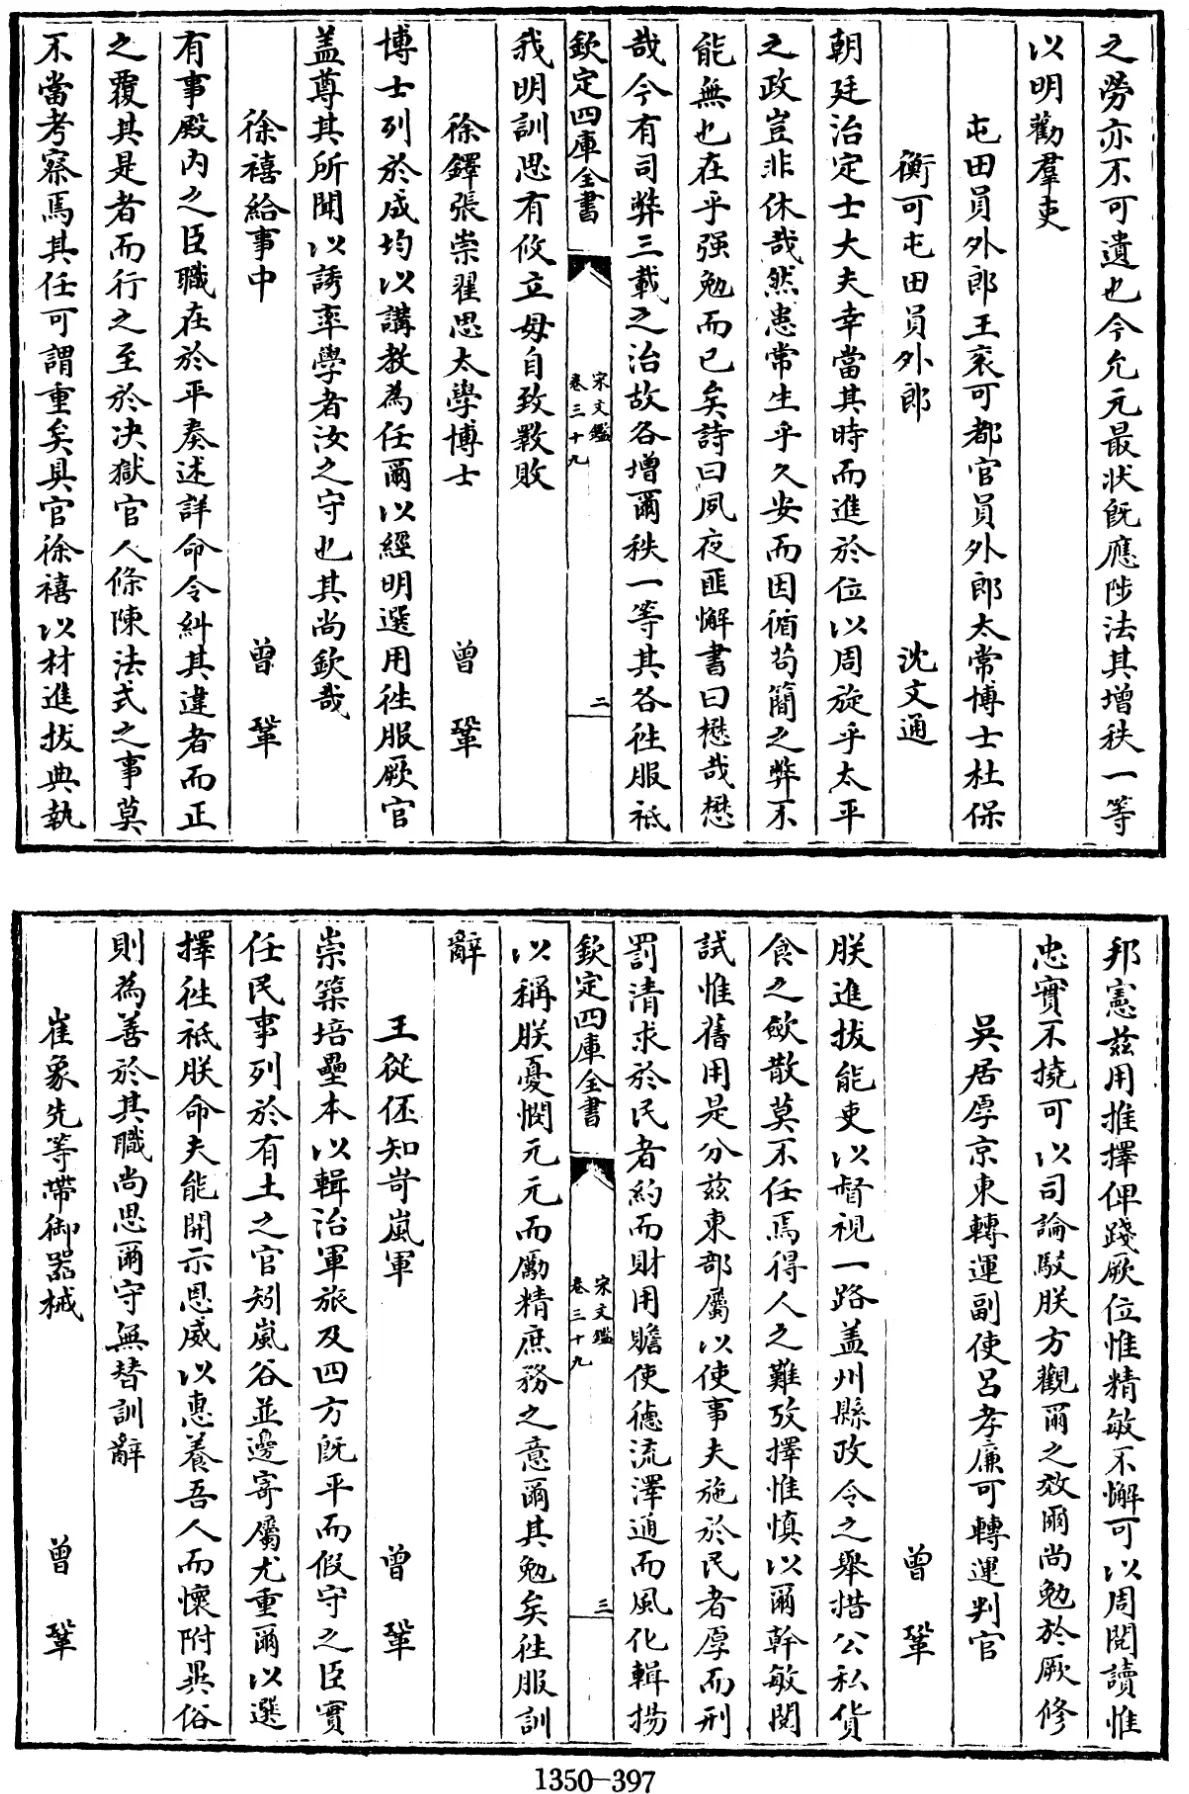 之勞亦不可遺也今允元最狀既應陟法其增秩一等
以明勸羣吏
屯田員外郎王袞可都官員外郎太常博士杜保
衡可屯田員外郎 沈文通
朝廷治定士大夫幸當其時而進於位以周旋乎太平
之政豈非休哉然患常生乎久安而因循苟簡之弊不
能無也在乎强勉而已矣詩曰夙夜匪懈書曰懋哉懋
哉今有司弊三載之治故各增爾秩一等其各徃服祗
欽定四庫全書 宋文鑑 卷三十九 二
我明訓思有攸立毋自致斁敗
徐鐸張崇翟思太學博士 曾鞏
博士列於成均以講教為任爾以經明選用徃服厥官
盖尊其所聞以誘率學者汝之守也其尚欽哉
徐禧給事中 曾鞏
有事殿内之臣職在於平奏述詳命令糾其違者而正
之覆其是者而行之至於决獄官人條陳法式之事莫
不當考察焉其任可謂重矣具官徐禧以材進拔典執
邦憲兹用推擇俾踐厥位惟精敏不懈可以周閲讀惟
忠實不撓可以司論駮朕方觀爾之效爾尚勉於厥修
吳居厚京東轉運副使吕孝廉可轉運判官
曾鞏
朕進拔能吏以督視一路盖州縣政令之舉措公私貨
食之斂散莫不任焉得人之難攷擇惟慎以爾幹敏閲
試惟舊用是分兹東部屬以使事夫施於民者厚而刑
罰清求於民者約而財用贍使德流澤通而風化輯揚
欽定四庫全書 宋文鑑 卷三十九 三
以稱朕憂憫元元而勵精庶務之意爾其勉矣徃服訓
辭
王從伾知岢嵐軍 曾鞏
崇築培壘本以輯治軍旅及四方既平而假守之臣實
任民事列於有土之官矧嵐谷並邊寄屬尤重爾以選
擇徃祗朕命夫能開示恩威以惠養吾人而懷附異俗
則為善於其職尚思爾守無替訓辭
崔象先等帶御器械 曾鞏
1350-397